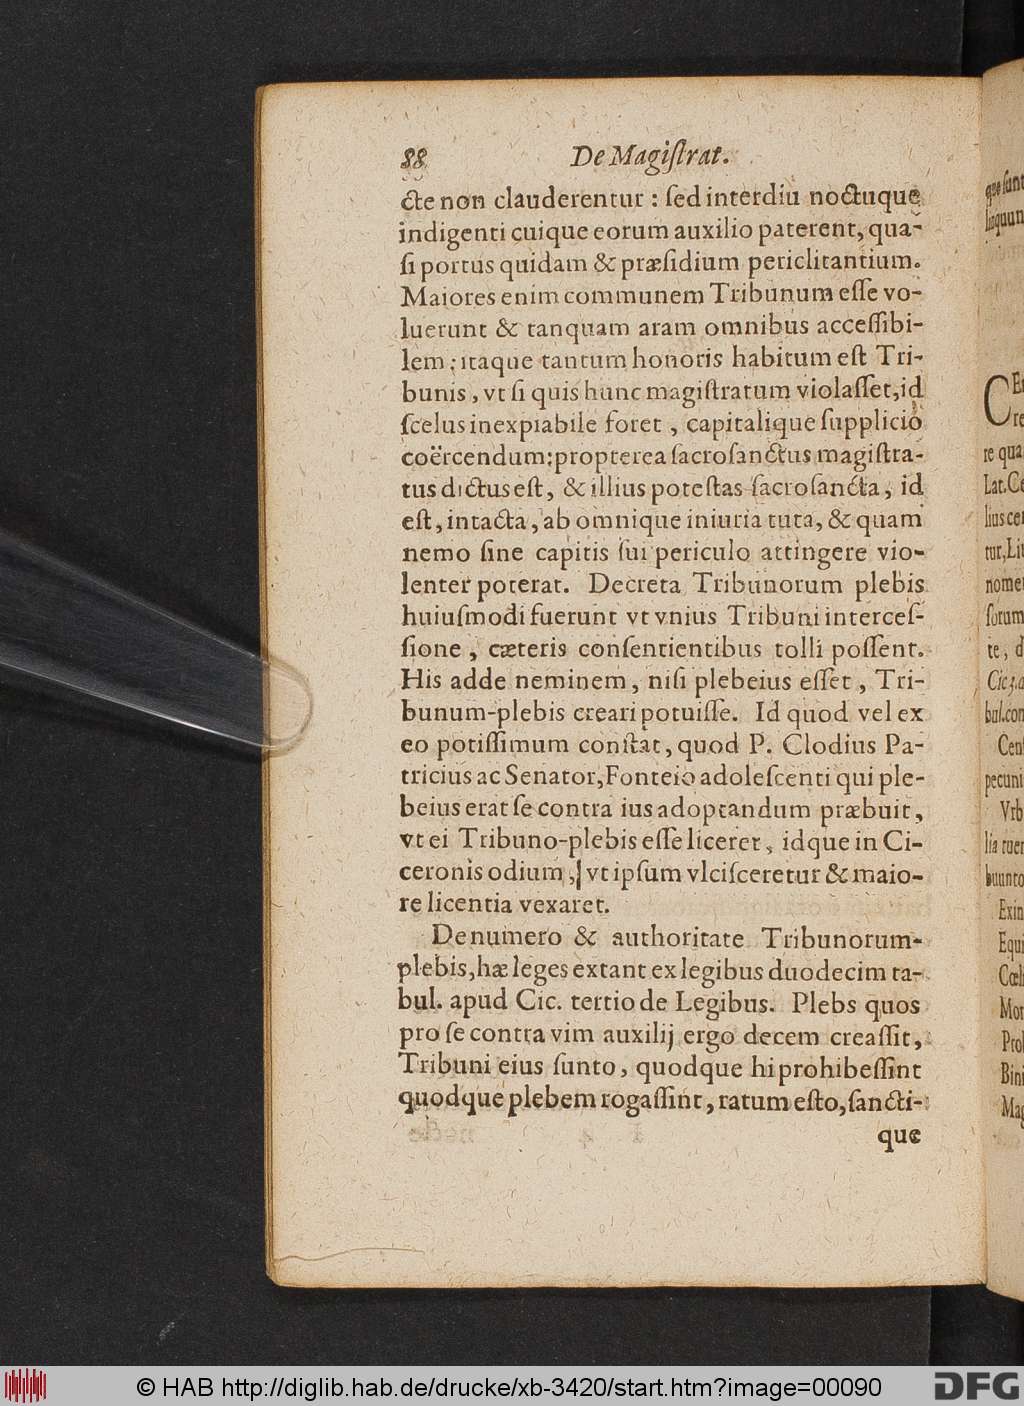 88 De Magiſtrat.
cte non clauderentur : ſed interdiu noctuque
indigenti cuique eorum auxilio paterent, qua-
ſi portus quidam & præſidium periclitantium.
Maiores enim communem Tribunum eſſe vo-
luerunt & tanquam aram omnibus acceſſibi-
lem ; itaque tantum honoris habitum eſt Tri-
bunis, vt ſi quis hunc magiſtratum violaſſet, id
ſcelus inexpiabile foret, capitalique ſupplicio
coërcendum: propterea ſacroſanctus magiſtra-
tus dictus eſt, & illius poteſtas ſacroſancta, id
eſt, intacta, ab omnique iniuria tuta, & quam
nemo ſine capitis ſui periculo attingere vio-
lenter poterat. Decreta Tribunorum plebis
huiuſmodi fuerunt vt vnius Tribuni interceſ-
ſione, cæteris conſentientibus tolli poſſent.
His adde neminem, niſi plebeius eſſet, Tri-
bunum-plebis creari potuiſſe. Id quod vel ex
eo potiſſimum conſtat, quod P. Clodius Pa-
tricius ac Senator, Fonteio adoleſcenti qui ple-
beius erat ſe contra ius adoptandum præbuit,
vt ei Tribuno-plebis eſſe liceret, idque in Ci-
ceronis odium, vt ipſum vlciſceretur & maio-
re licentia vexaret.
De numero & authoritate Tribunorum-
plebis, hæ leges extant ex legibus duodecim ta-
bul. apud Cic. tertio de Legibus. Plebs quos
pro ſe contra vim auxilij ergo decem creaſſit,
Tribuni eius ſunto, quodque hi prohibeſſint
quodque plebem rogaſſint, ratum eſto, ſancti-
que
que ſunt
CE
re qua
Lat. Ce
lius cen
tur, Lit
nome
ſorum
te, d
Cic 3. a
bul. con
Cenſ
pecuni
Vrb
lia tuer
buunto
Exin
Equi
Cœli
Mor
Prob
Bini
Mag
© HAB http://diglib.hab.de/drucke/xb-3420/start.htm?image=00090
DFG